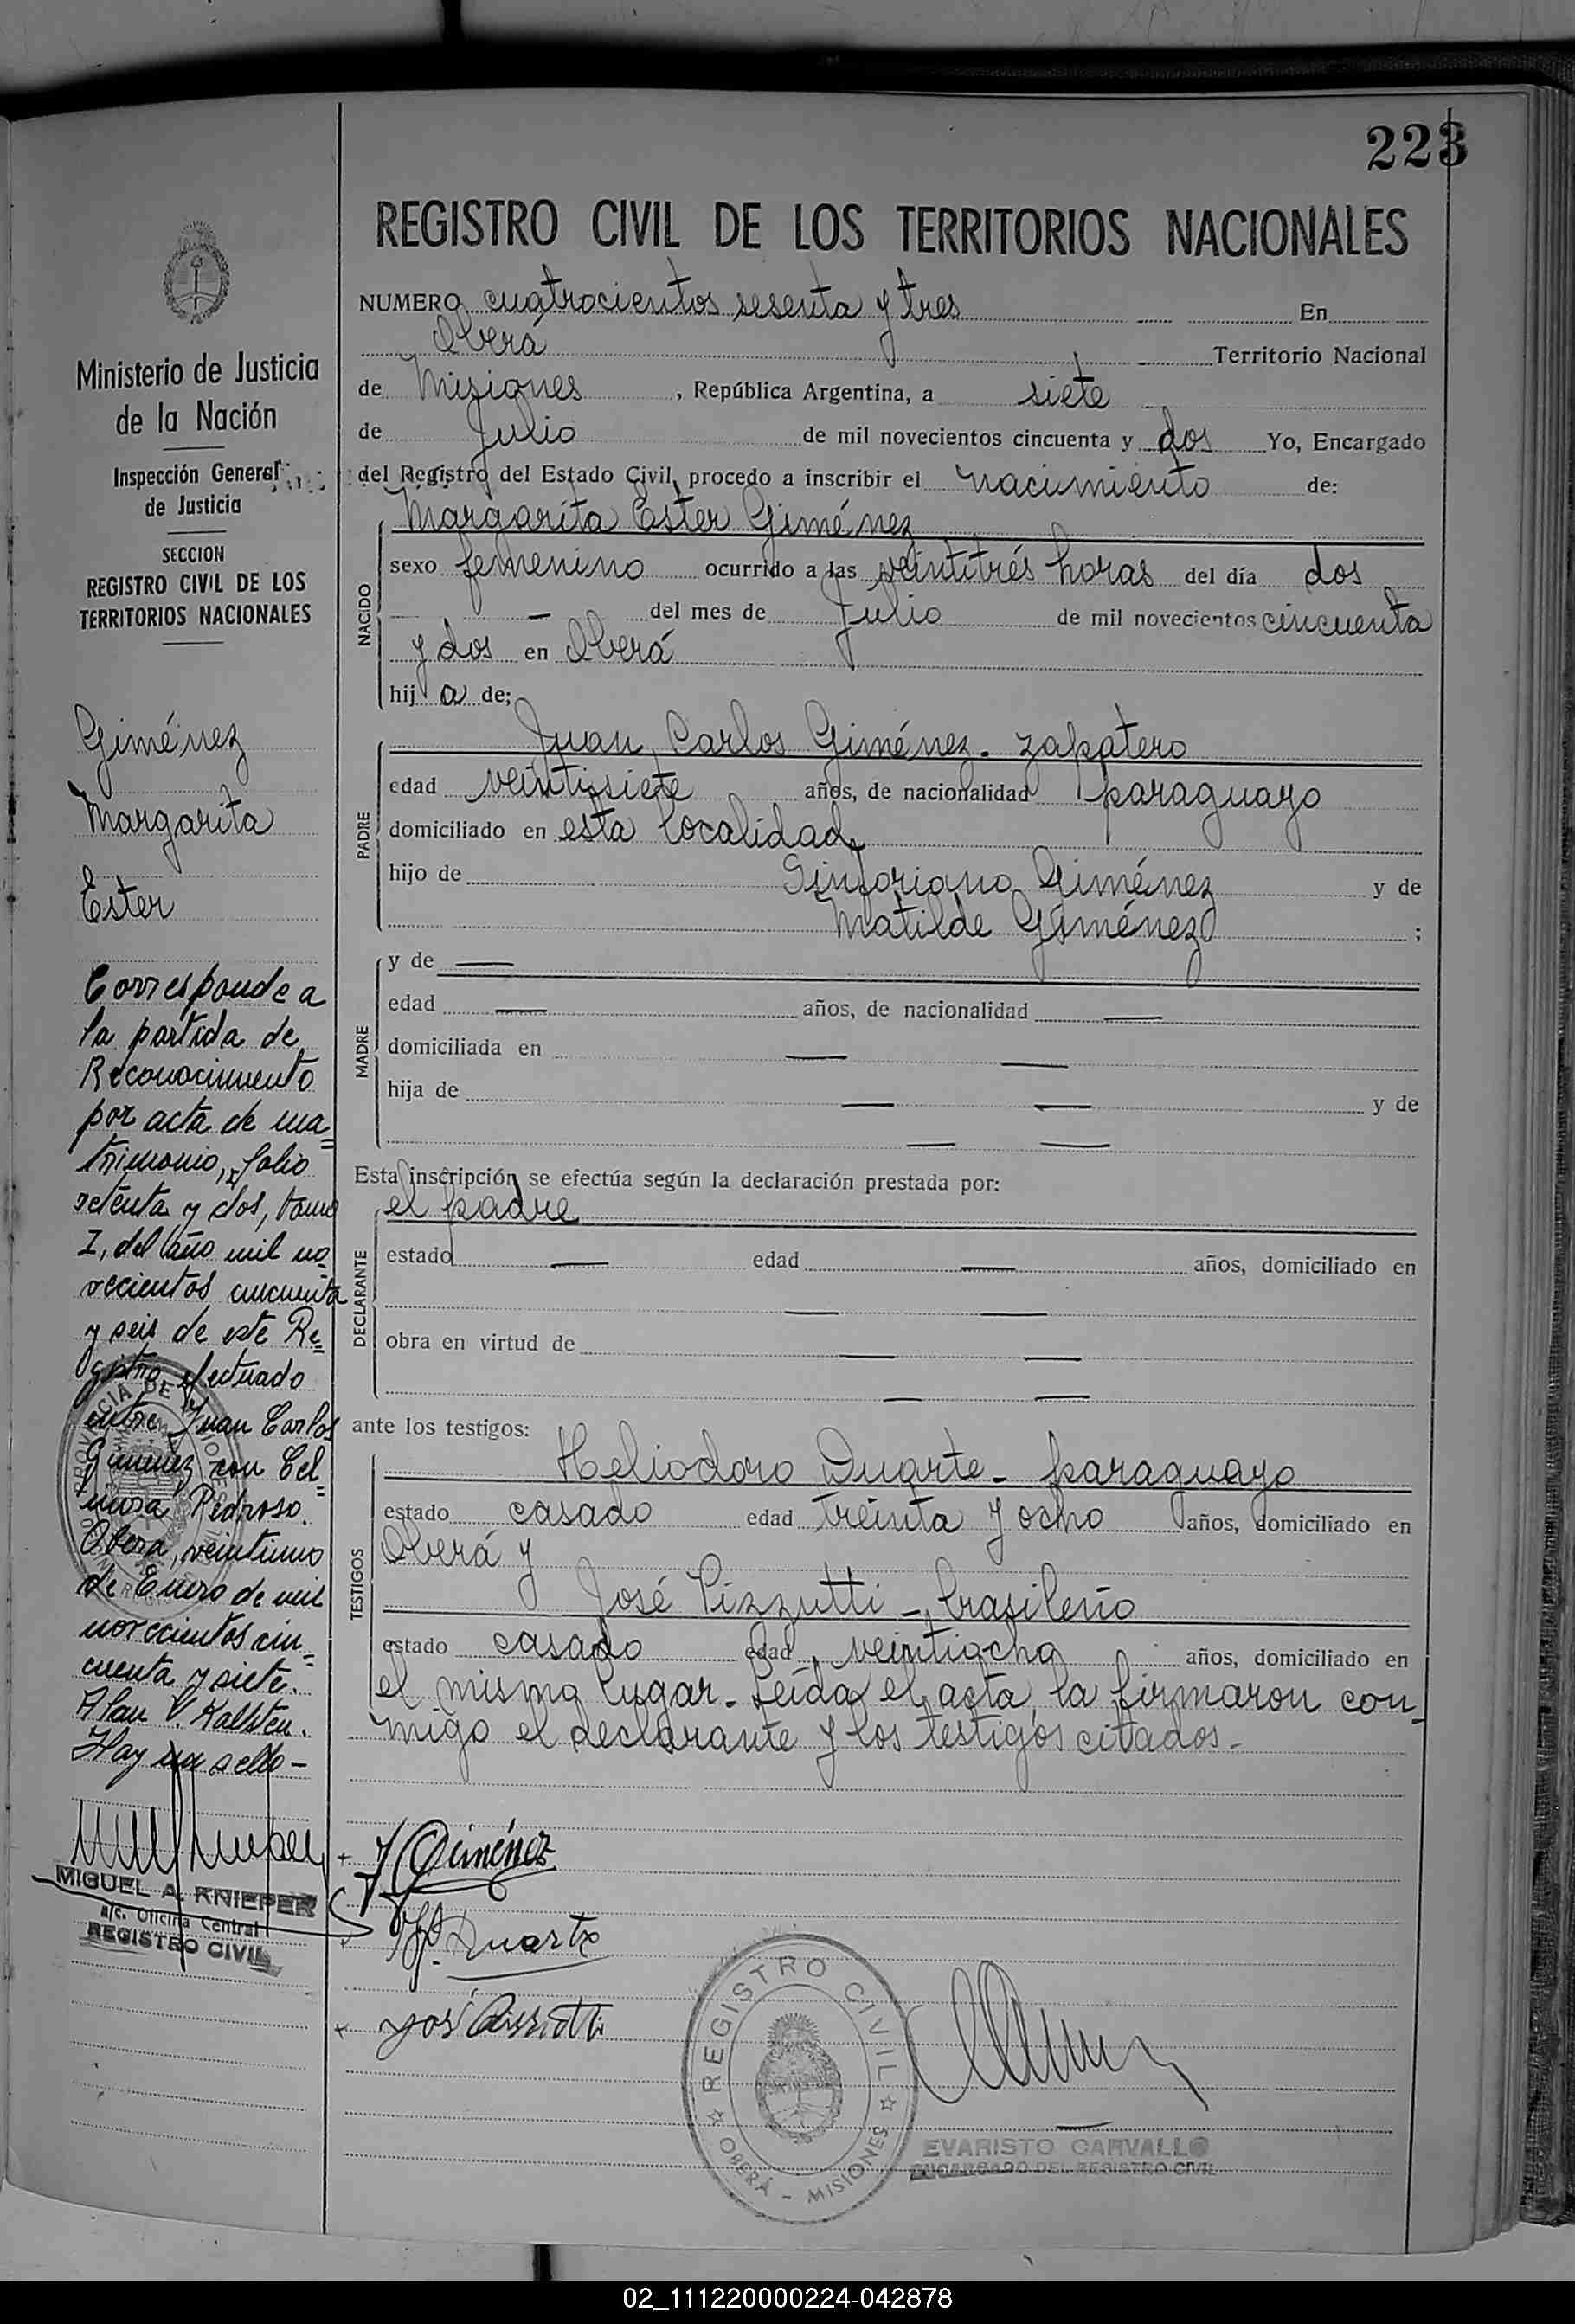 223
REGISTRO CIVIL DE LOS TERRITORIOS NACIONALES
NUMERO cuatrocientos sesenta y tres En
Oberá Territorio Nacional
de Misiones, República Argentina, a siete
de Julio de mil novecientos cincuenta y dos Yo, Encargado
del Registro del Estado Civil, procedo a inscribir el nacimiento de:
NACIDO
Margarita Ester Giménez
sexo femenino ocurrido a las veintitrés horas del día dos
— del mes de Julio de mil novecientos cincuenta
y dos en Oberá
hija de;
PADRE
Juan Carlos Giménez - zapatero
edad veintisiete años, de nacionalidad paraguayo
domiciliado en esta localidad
hijo de Sinforiano Giménez y de
Matilde Giménez;
MADRE
y de —
edad — años, de nacionalidad —
domiciliada en — —
hija de — — y de
— —
Esta inscripción se efectúa según la declaración prestada por:
DECLARANTE
el padre
estado — edad — años, domiciliado en
— —
obra en virtud de — —
— —
ante los testigos:
TESTIGOS
Heliodoro Duarte - paraguayo
estado casado edad treinta y ocho años, domiciliado en
Oberá y
José Pizzutti - brasileño
estado casado edad veintiocho años, domiciliado en
el mismo lugar. Leída el acta, la firmaron con-
migo el declarante y los testigos citados.-
J C Giménez
H. Duarte
José Pizzutti
REGISTRO CIVIL
OBERÁ - MISIONES
EVARISTO CARVALLO
ENCARGADO DEL REGISTRO CIVIL
Ministerio de Justicia
de la Nación
Inspección General
de Justicia
SECCION
REGISTRO CIVIL DE LOS
TERRITORIOS NACIONALES
Giménez
Margarita
Ester
Corresponde a
la partida de
Reconocimiento
por acta de ma=
trimonio, folio
setenta y dos, tomo
I, del año mil no=
vecientos cincuenta
y seis de este Re=
gistro efectuado
entre Juan Carlos
Gimenez con Cel=
mira Pedroso.
Oberá, veintiuno
de Enero de mil
novecientos cin=
cuenta y siete.
Alan V. Kalsten.
Hay un sello -
MIGUEL A. KNIEPER
a/c. Oficina Central
REGISTRO CIVIL
02_111220000224-042878